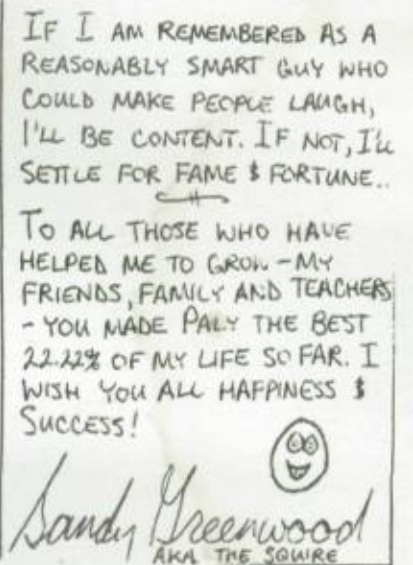 IF I AM REMEMBERED AS A
REASONABLY SMART GUY WHO
COULD MAKE PEOPLE LAUGH,
I'LL BE CONTENT. IF NOT, I'LL
SETTLE FOR FAME & FORTUNE..
TO ALL THOSE WHO HAVE
HELPED ME TO GROW - MY
FRIENDS, FAMILY AND TEACHERS
- YOU MADE PALY THE BEST
22.22% OF MY LIFE SO FAR. I
WISH YOU ALL HAPPINESS &
SUCCESS!
Sandy Greenwood
AKA THE SQUIRE